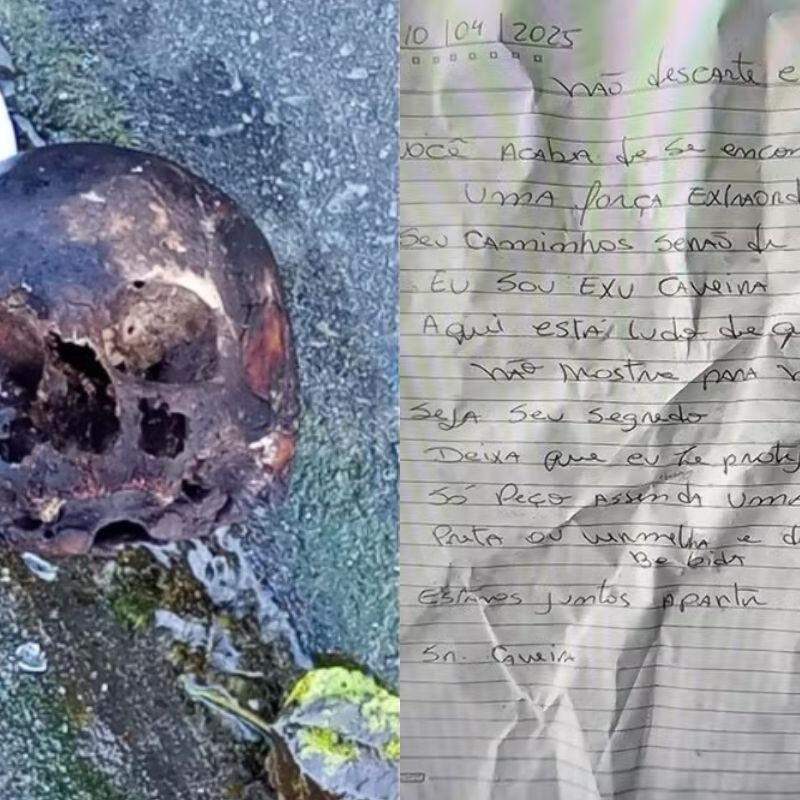 10 | 04 | 2025
NÃO descarte e
você ACABA de se encon
UMA força EXTRAORD
Seu CAMINHOS SENÃO de
Eu Sou EXU CAVEIRA
Aqui está tudo de q
NÃO MOSTRE PARA N
SEJA Seu Segredo
DEIXA que eu te prote
SÓ Peço ASSENDA UMA
Preta ou vermelha e d
Be bida
Estamos juntos APARTIR
Sr. Caveira